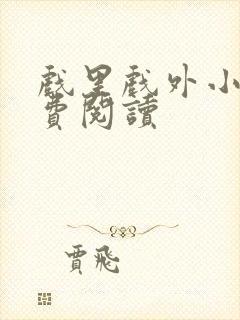 戲里戲外小
費閱讀
賈飛